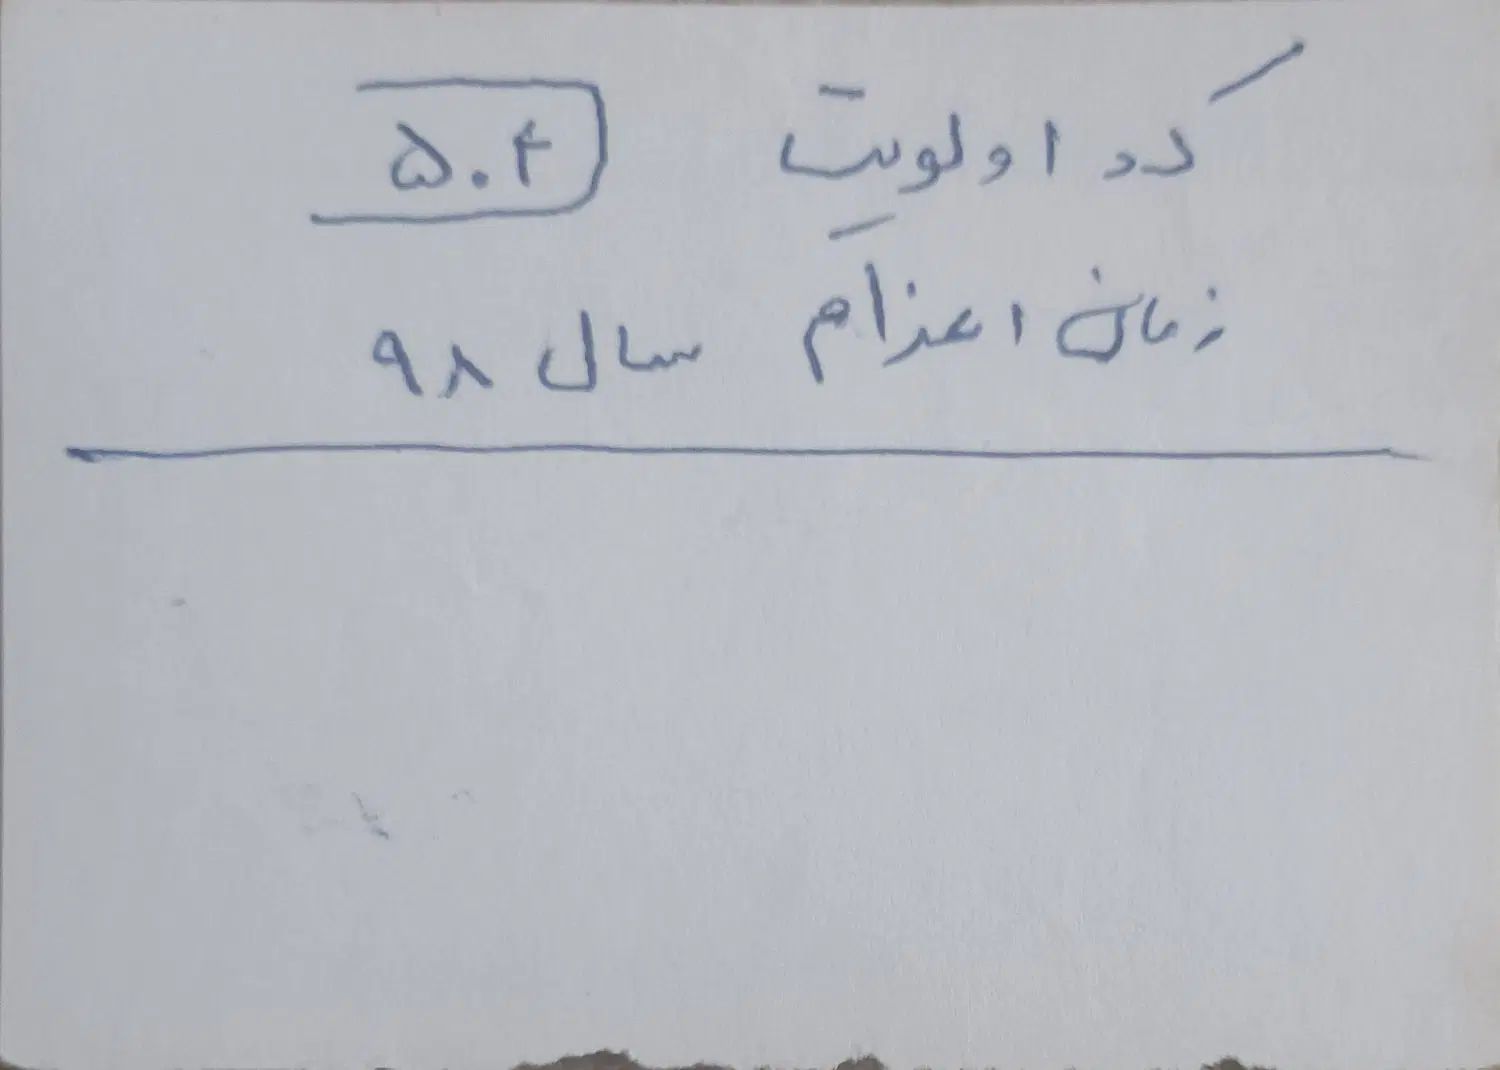 کد اولویت ۵۰۴
زمان اعزام سال ۹۸